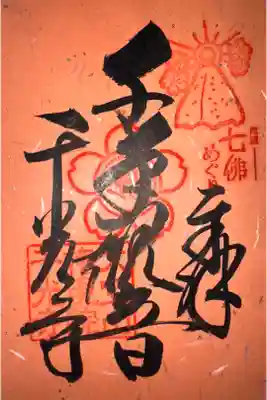 奉拝
七佛
めぐ
千手観音
千光寺